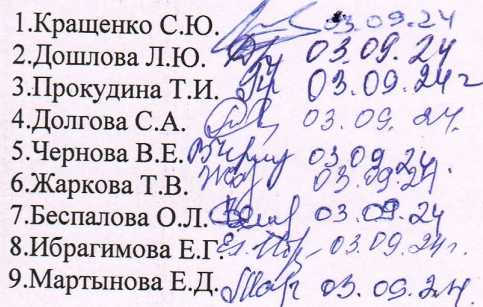 1.Кращенко С.Ю. 03.09.24
2.Дошлова Л.Ю. 03.09.24
3.Прокудина Т.И. 03.09.24г
4.Долгова С.А. 03.09.24.
5.Чернова В.Е. 03.09.24.
6.Жаркова Т.В. 03.09.24.
7.Беспалова О.Л. 03.09.24
8.Ибрагимова Е.Г. 03.09.24г.
9.Мартынова Е.Д. 03.09.24.